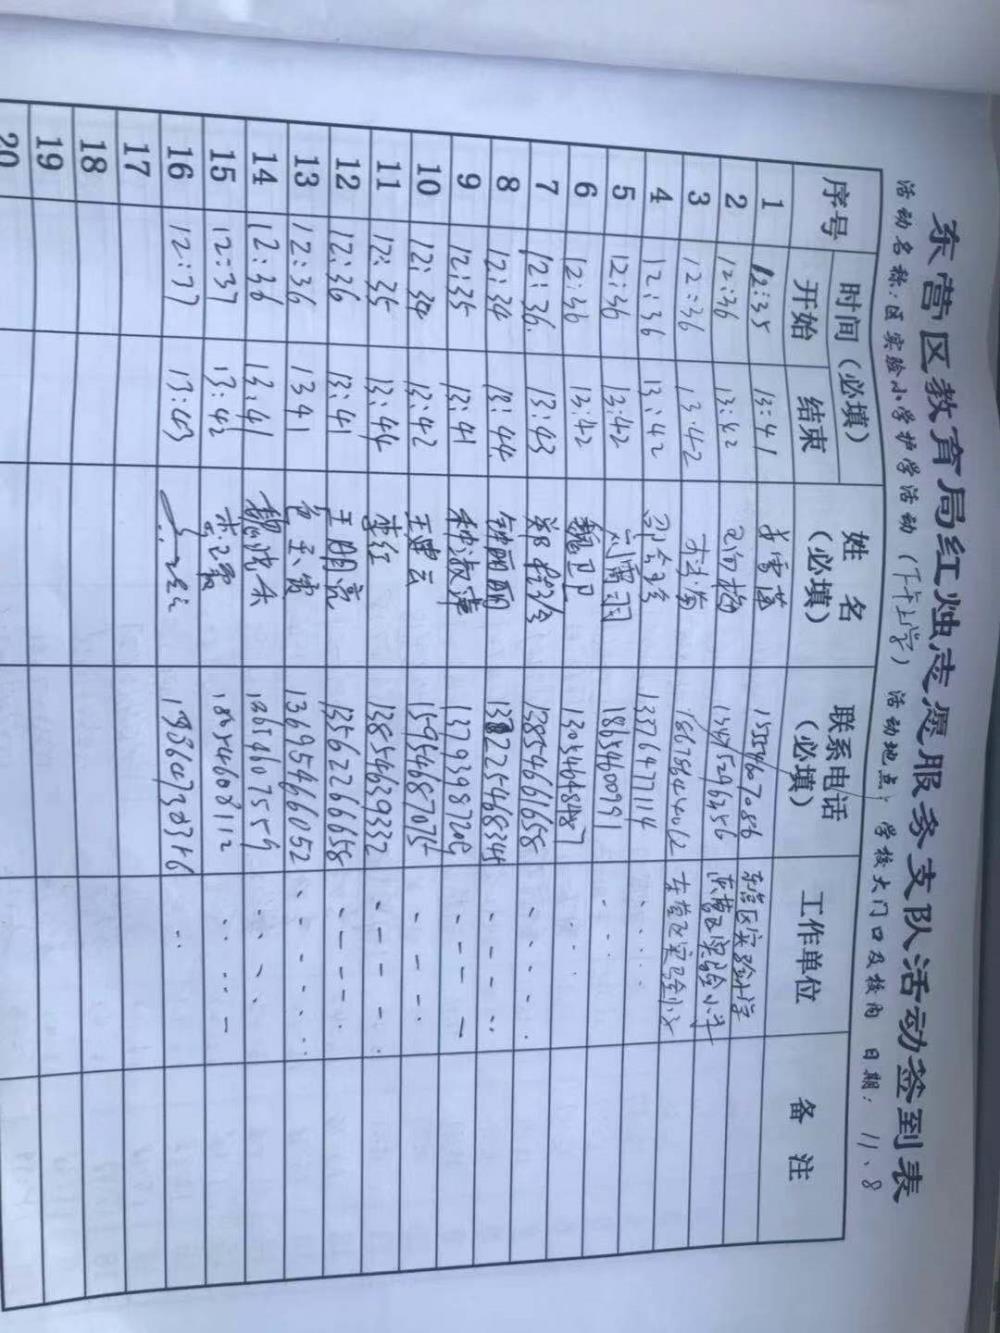 东营区教育局红烛志愿服务支队活动签到表
活动名称：区实验小学护学活动（下午上学） 活动地点：学校大门口及校内 日期：11、8
序号 时间（必填） 姓名（必填） 联系电话（必填） 工作单位 备注
开始 结束
1 12:35 13:41 15554607086 东营区实验小学
2 12:36 13:42 东营区实验小学
3 12:36 13:42 18678644062 东营区实验小学
4 12:36 13:42 13376477114
5 12:36 13:42 刘雷羽 18654600991
6 12:36 13:42 魏卫卫
7 12:36 13:43 13854661658
8 12:34 13:44 钟丽丽
9 12:35 13:41 种淑萍 13793987209
10 12:34 13:42 王建云 15954687075
11 12:35 13:44 李红 13854639332
12 12:36 13:41 王明亮 13562266658
13 12:36 1341 13695466052
14 12:36 13:41 18654607559
15 12:37 13:42 18054608112
16 12:37 13:43
17
18
19
20